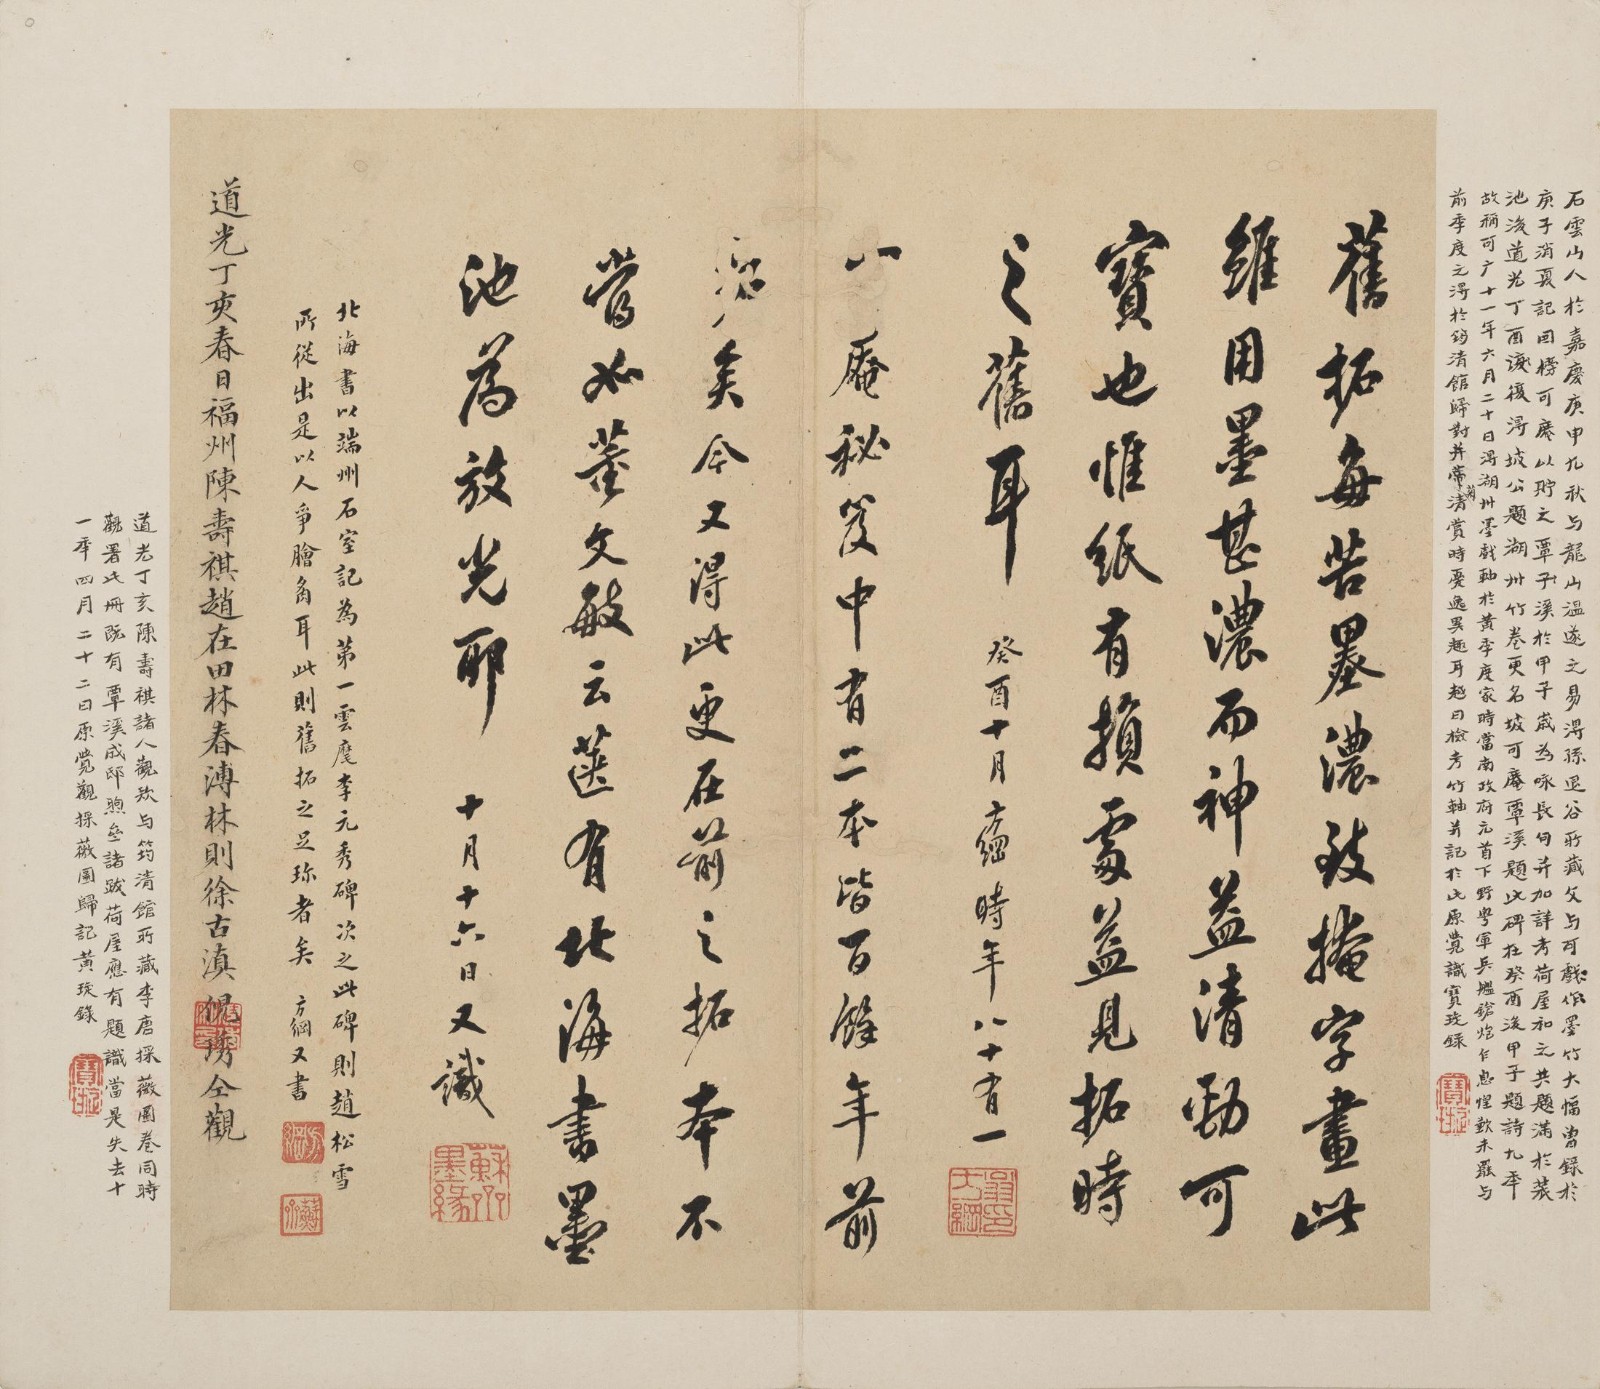 石雲山人於嘉慶庚申九秋与龍山溫遂之易得孫退谷所藏文与可戲作墨竹大幅曾錄於
庚子消夏記因榜可庵以貯之覃溪於甲子歲為咏長句并加詳考荷屋和之共題滿於裝
池後道光丁酉讓後得坡公題湖州竹卷更名坡可庵覃溪題此碑在癸酉後甲子題詩九年
故稱可广十一年六月二十日得湖州墨戲軸於黃季度家時當南政府元首下野粵軍兵艦鎗炮乍息惶歎未罷与
前季度之得於筠清館歸對并幬清賞時憂逸異趣耳越日檢考竹軸并記於此原覺識寶琁錄
舊拓每苦墨濃致掩字畫此
雖用墨甚濃而神益清勁可
寶也惟紙有損處益見拓時
之舊耳
癸酉十月方綱時年八十有一
八庵秘笈中有二本皆百餘年前
矣今又得此更在前之拓本不
當如董文敏云篋有北海書墨
池為放光耶
十月十六日又識
北海書以端州石室記為第一雲麾李元秀碑次之此碑則趙松雪
所從出是以人爭膾炙耳此則舊拓之足珍者矣 方綱又書
道光丁亥春日福州陳壽祺趙在田林春溥林則徐古滇倪琇仝觀
道光丁亥陳壽祺諸人觀款与筠清館所藏李唐採薇圖卷同時
觀署此冊既有覃溪成邸煦叄諸跋荷屋應有題識當是失去十
一年四月二十二日原覺觀採薇圖歸記黃琁錄
翁方綱印
蘇齋墨緣
方綱
蘇齋